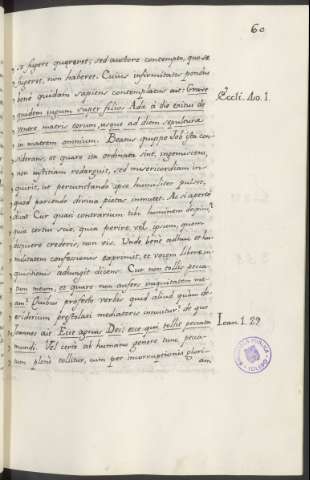 60
se supere quæreret, sed auctore contempto, quo se
fugeret, non haberet. Cuius infirmitatis pondus
bene quidam sapiens contemplatus ait: Grave
quidem iugum super filios Adæ à die exitus de
ventre matris eorum, usque ad diem sepulturæ
in matrem omnium. Beatus quippe Job ista con
siderans, et quare ita ordinata sint, ingemiscens,
non iustitiam redarguit, sed misericordiam in-
quirit, ut percunctando ipse humiliter pulset,
quod parcendo divina pietas immutet. Ac si apertè
dicat Cur quasi contrarium tibi hominem despicis,
qui certus sum, quia perire vel ipsum, quem
despicere crederis, non vis. Unde bene adhuc et hu-
militatem confessionis exprimit, et vocem liberæ in-
quisitionis adiungit dicens: Cur non tollis pecca-
tum meum, et quare non aufers iniquitatem me-
am? Quibus profecto verbis quid aliud quàm de-
siderium præstolati mediatoris innuitur? de quo
Ioannes ait: Ecce agnus Dei, ecce qui tollit peccata
mundi. Vel certe ab humano genere tunc pecca-
tum plenè tollitur, cum per incorruptionis glori-
am
Eccli. 40. 1.
Ioan 1. 29
BIBLIOTECA PUBLICA
TOLEDO